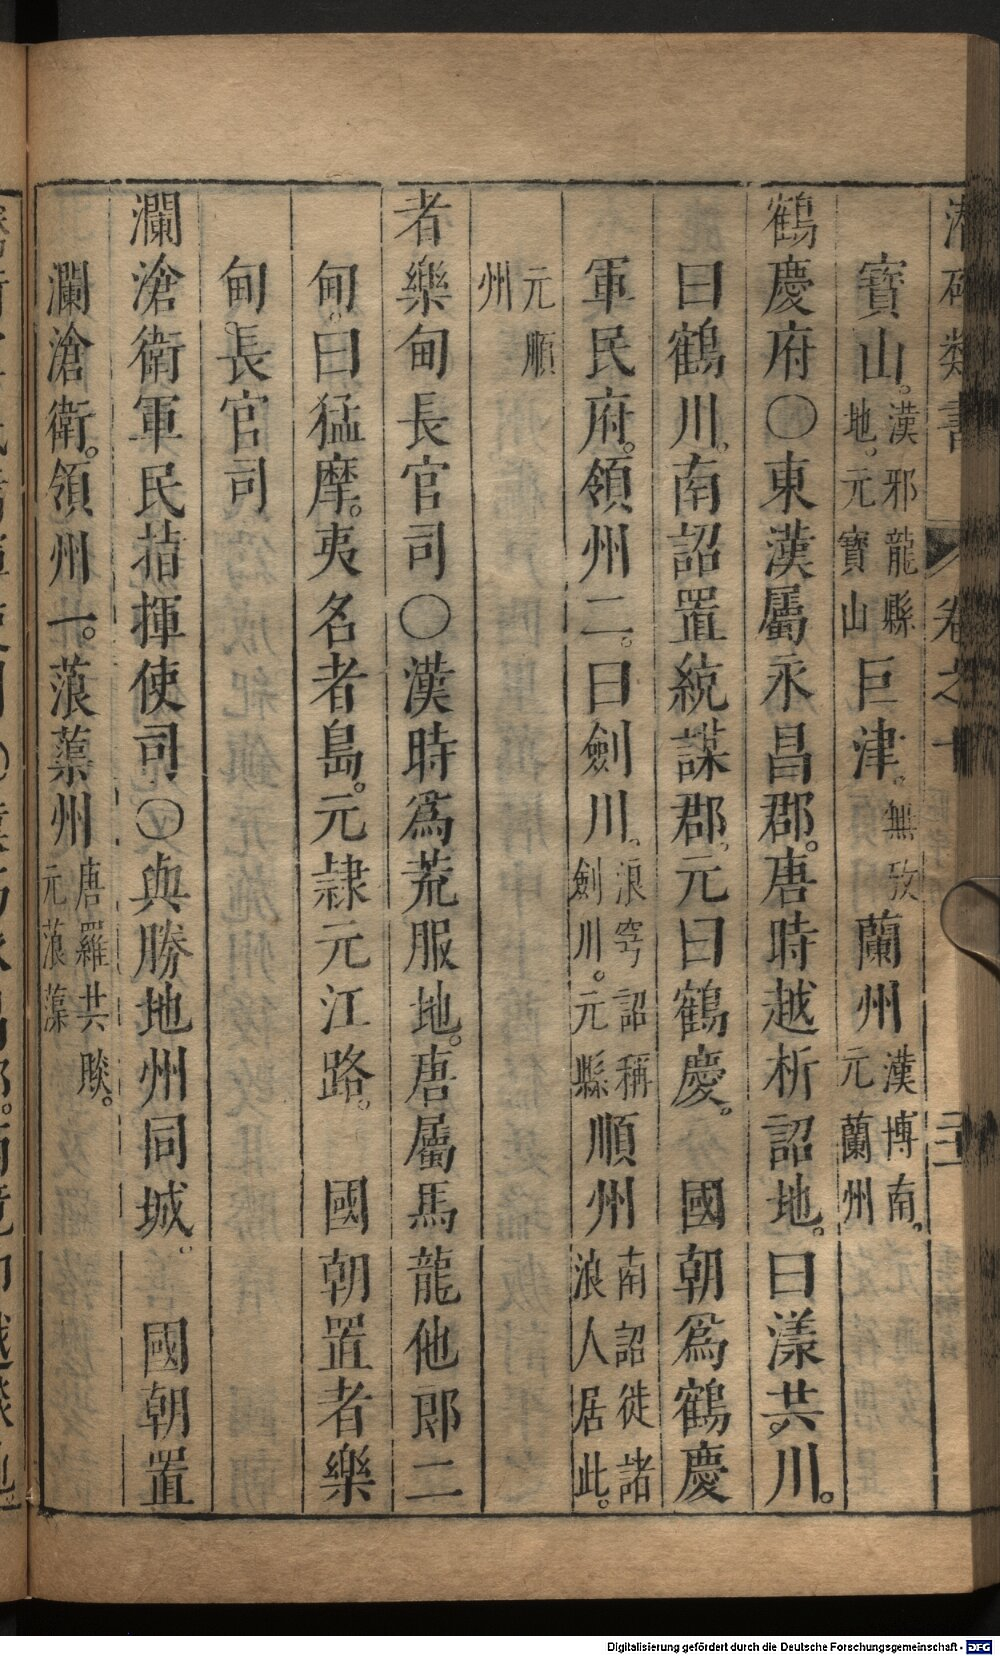 潛確類書 卷之十 二十一
寶山。漢邪龍縣地。元寶山 巨津。無攷 蘭州 漢博南。元蘭州
鶴慶府〇東漢屬永昌郡。唐時越析詔地。曰漾共川。
曰鶴川。南詔置統謀郡。元曰鶴慶。 國朝爲鶴慶
軍民府。領州二。曰劍川。浪穹詔稱劍川。元縣 順州 南詔徙諸浪人居此。
元順州
者樂甸長官司〇漢時爲荒服地。唐屬馬龍他郎二
甸。曰猛摩。夷名者島。元隷元江路。 國朝置者樂
甸長官司
瀾滄衛軍民指揮使司〇與勝地州同城。 國朝置
瀾滄衛。領州一。蒗蕖州 唐羅共賧。元蒗蕖
Digitalisierung gefördert durch die Deutsche Forschungsgemeinschaft - DFG